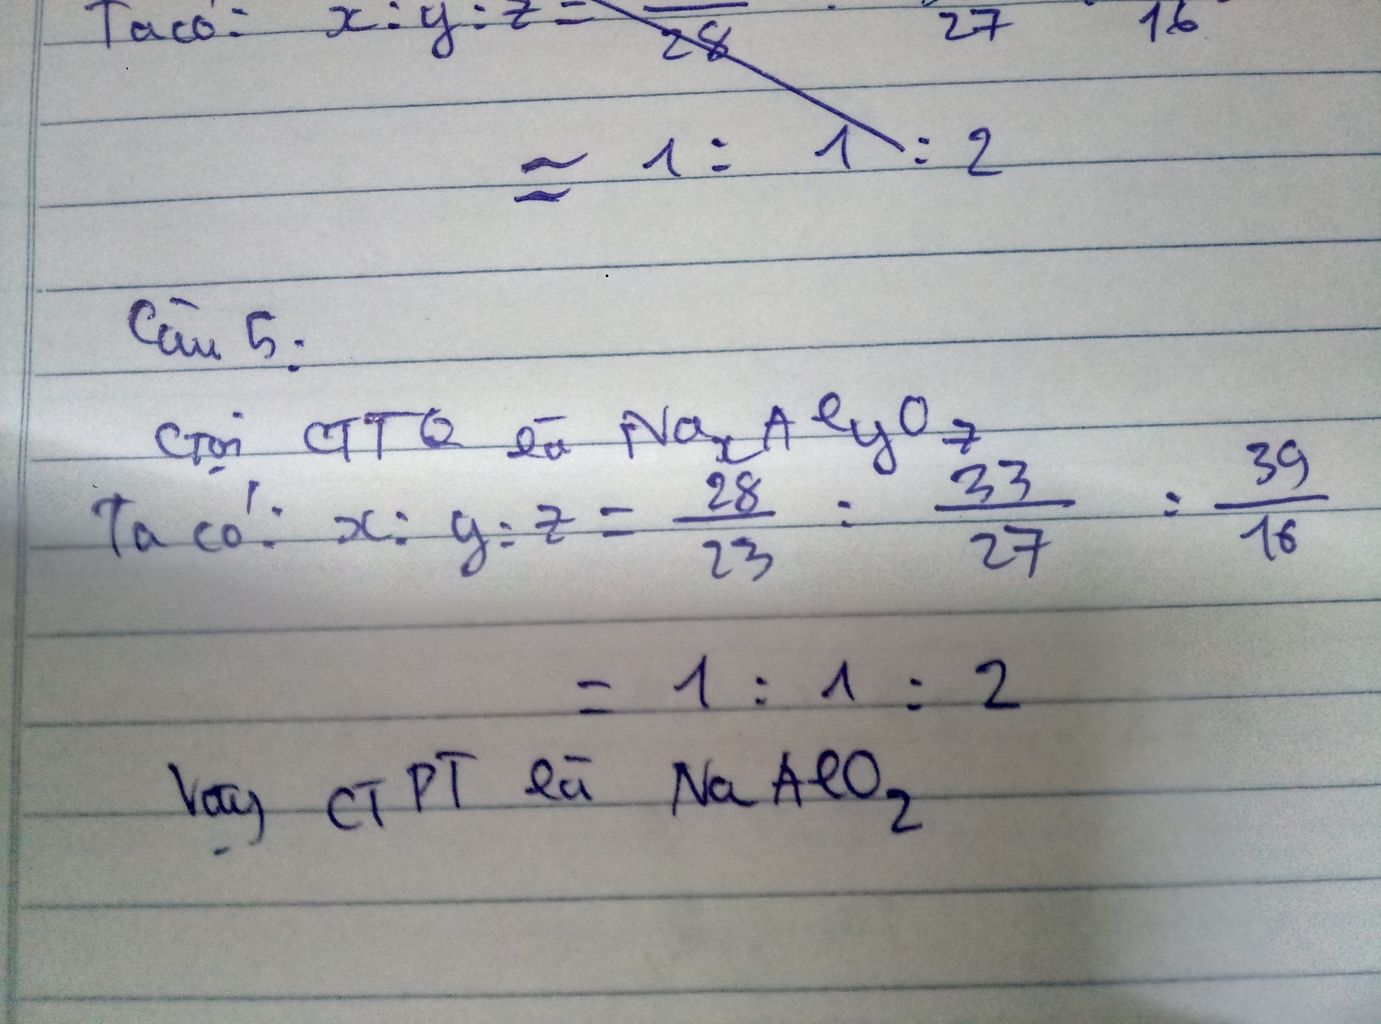 Ta có: x : y : z = /28 : /27 : /16
≈ 1 : 1 : 2
Câu 5:
Gọi CTTQ là NaxAlyOz
Ta có: x : y : z = 28/23 : 33/27 : 39/16
= 1 : 1 : 2
Vậy CTPT là NaAlO2